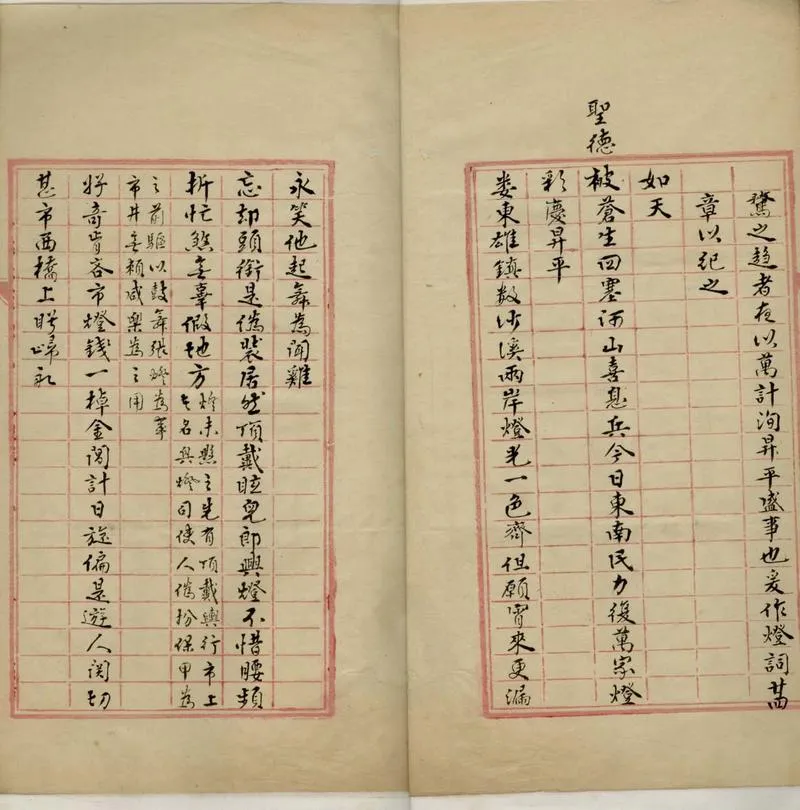 騖之趋者夜以萬計洵昇平盛事也爰作燈詞廿四
章以紀之
如天
聖德被蒼生四塞河山喜息兵今日東南民力復萬家燈
彩慶昇平
婁東雄鎮數沙溪兩岸燈光一色齊但願宵來更漏
永笑他起舞為聞雞
忘却頭銜是偽裝居然頂戴眩兒郎興燈不惜腰頻
折忙煞無辜假地方
燈未點之先有頂戴輿行市上
名興燈司使人偽扮保甲為
之前驅以鼓舞張燈為
市井無頼咸樂為之用
好奇肯吝市燈錢一棹金閶計日旋偏是遊人関切
甚市西橋上盻歸船